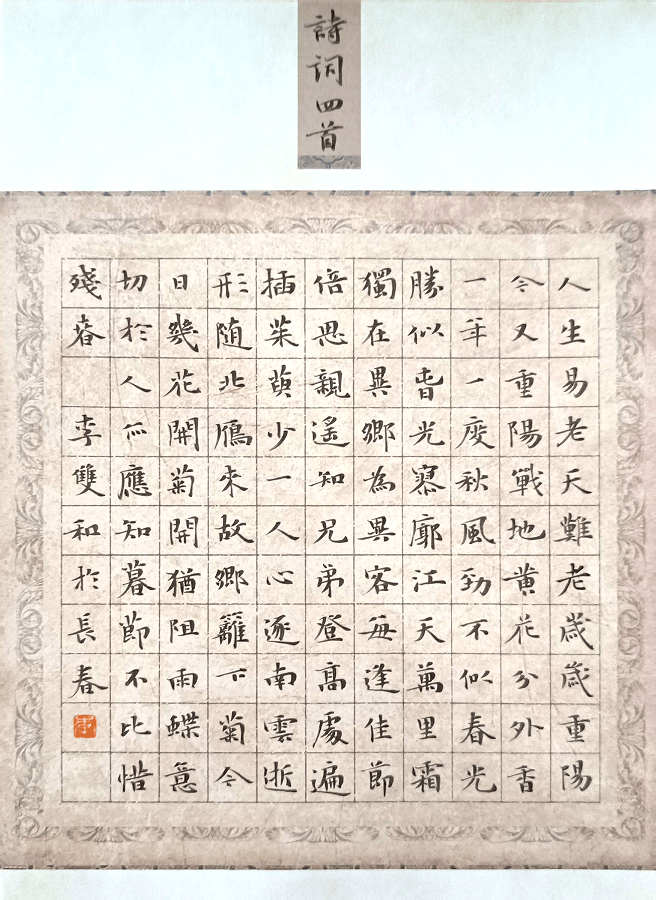 詩詞四首
人生易老天難老歲歲重陽
今又重陽戰地黄花分外香
一年一度秋風勁不似春光
勝似旾光寥廓江天萬里霜
獨在異鄉為異客每逢佳節
倍思親遙知兄弟登高處遍
插茱萸少一人心逐南雲逝
形随北鴈來故鄉籬下菊今
日幾花開菊開猶阻雨蝶意
切於人亦應知暮節不比惜
殘春 李雙和於長春
李